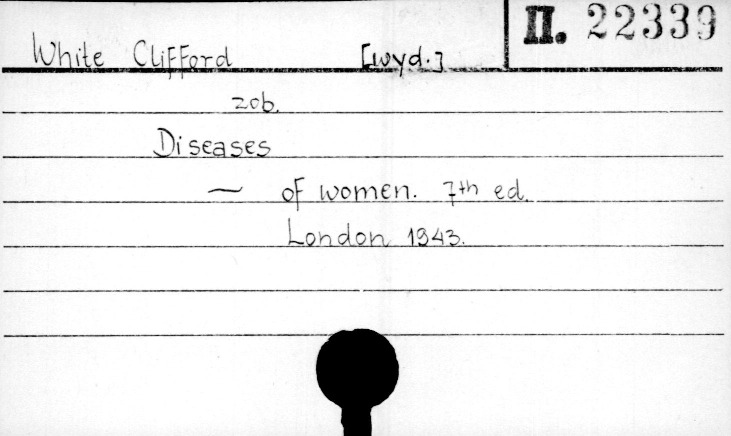 II. 22339
White Clifford [wyd.]
zob.
Diseases
— of women. 7th ed.
London 1943.